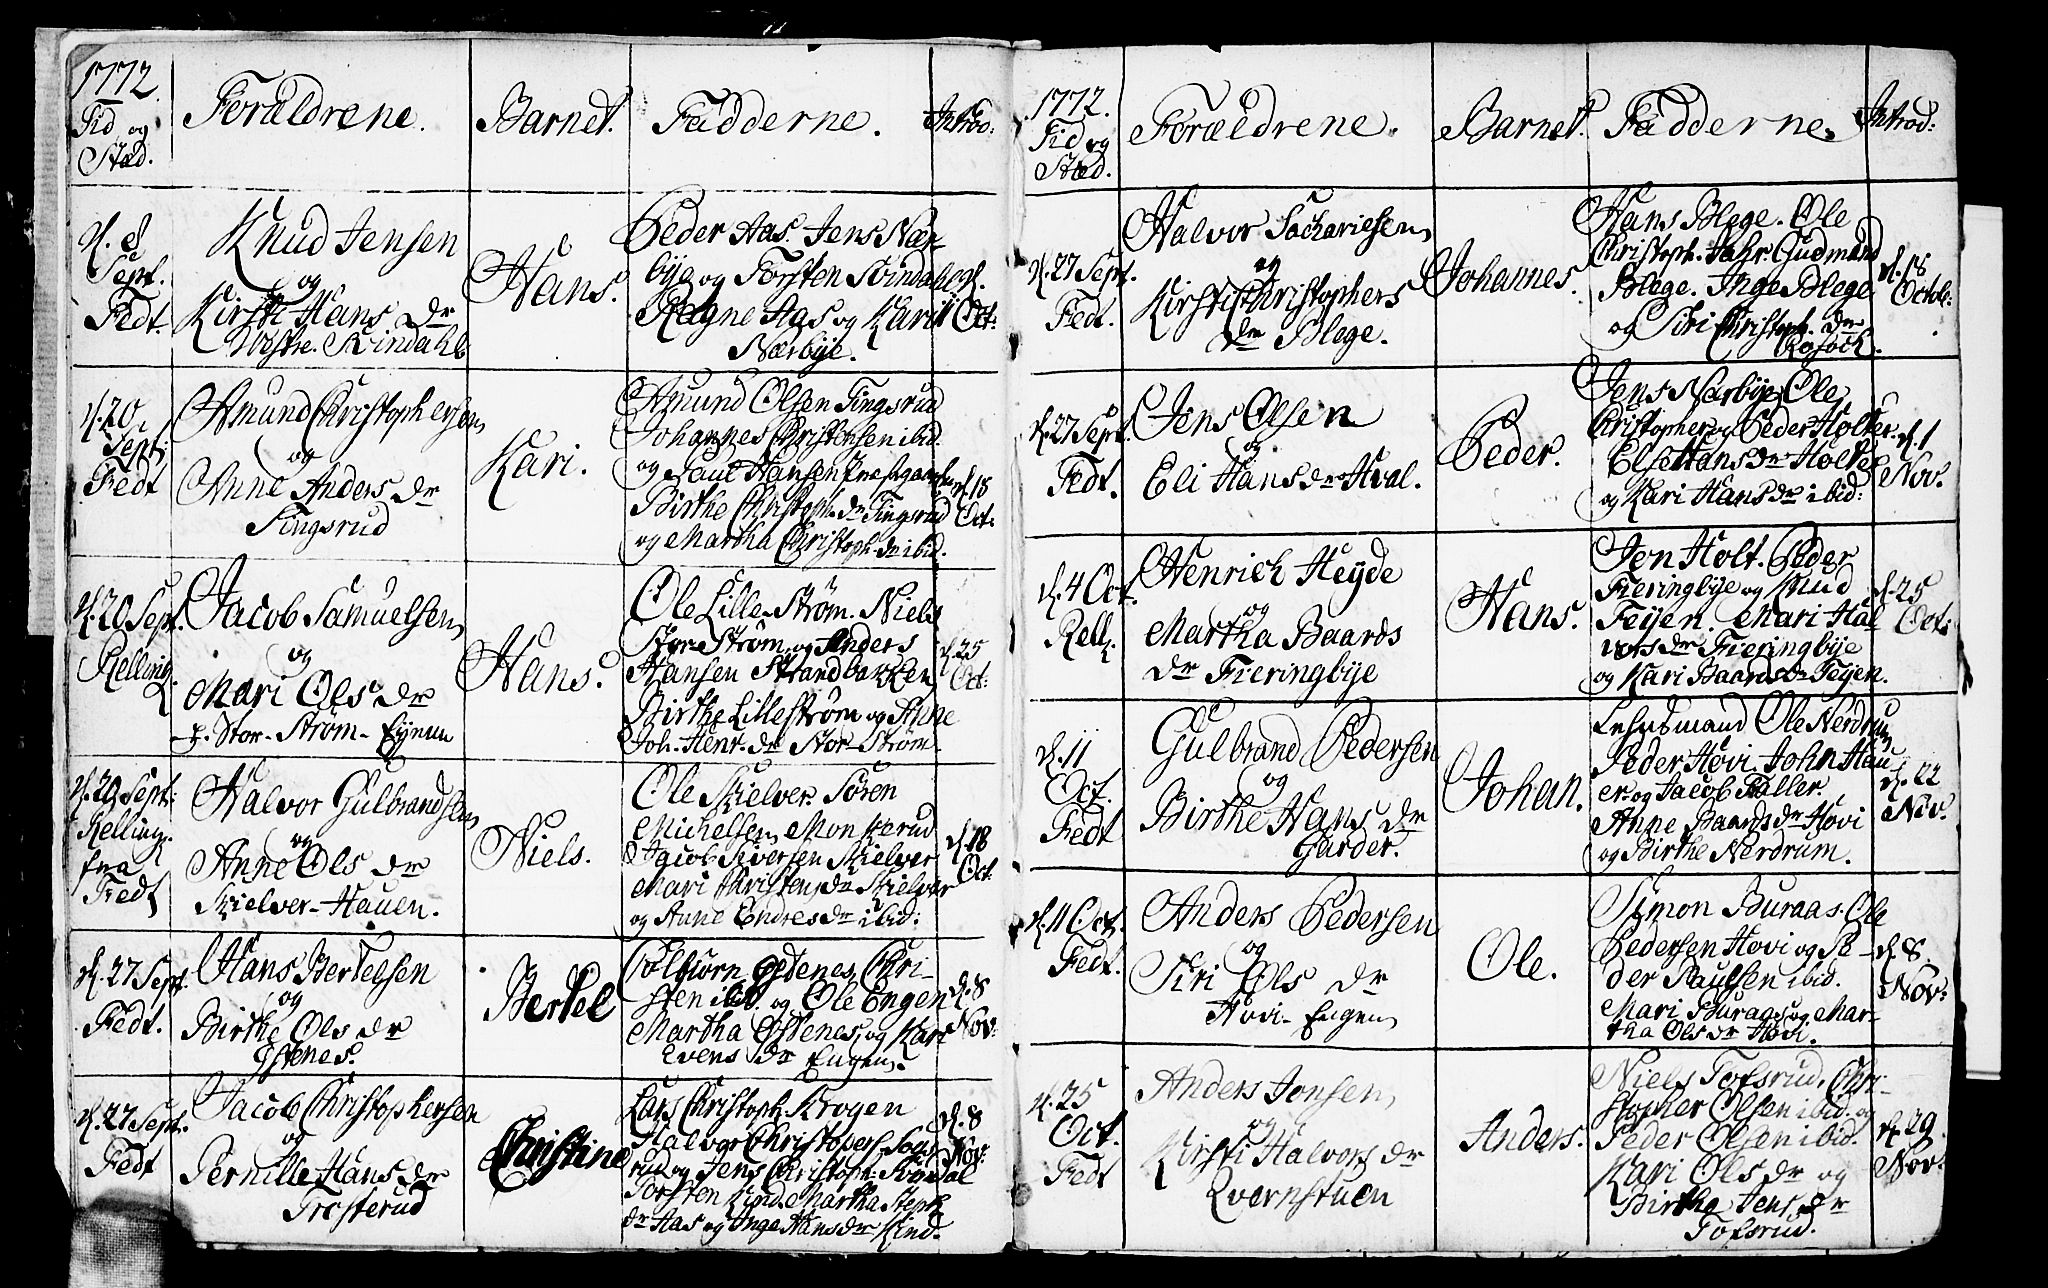 1772.
Tid og
Stæd.
Forældrene.
Barnet.
Fadderne.
Introd:
d. 8
Sept.
Fedt.
Knud Jensen
og
Kirsti Hans dr
Westre. Svindahl
Hans.
Peder Aas. Jens Nær-
bÿe og Torsten Svindahl
Ragne Aas og Kari
Nærbÿe.
d. 11
Oct:
d. 20
Sept:
Fedt
Amund Christophersen
og
Anne Anders dr
Tingsrud
Kari.
Amund Olsen Tingsrud
Johannes Christensen ibid.
og Paul Hansen
Birthe Christoph. dr Tingsrud
og Martha Christoph. dr ibid.
d. 18
Oct:
d. 20 Sept.
Relling
Jacob Samuelsen
og
Mari Ols dr
Stor-Strøm- Eÿnun
Hans.
Ole Lille-Strøm. Niels
Stor-Strøm og Anders
Hansen Strandbakken
Birthe Lillestrøm og Anne
Joh. Henr. dr Stor-Strøm.
d. 25
Oct:
d. 20 Sept:
Relling
fra
Fedt
Halvor Gulbrandsen
og
Anne Ols dr
Skielver-Hauen.
Niels.
Ole Skielver. Søren
Michelsen Monkerud
Jacob Siversen Skielver
Mari Christens dr Skielver
og Anne Endres dr ibid:
d. 18
Oct:
d. 27 Sept.
Fedt.
Hans Bertelsen
og
Birthe Ols dr
Ostenes.
Bertel
Colbiørn Ostenes, Chri-
sten ibid. og Ole Engen
Martha Ostenes, og Kari
Evens dr Engen.
d. 8
Nov:
d. 27 Sept.
Fedt
Jacob Christophersen
og
Pernille Hans dr
Trosterud
Christine
Lars Christoph. Krogen
Halvor Christophers.
rud og Jens Christoph: Svindal
Torsten Kind. Martha Steph.
dr Aas og Inge Hans dr Kind.
d. 8
Nov:
1772.
Tid og
Stæd.
Forældrene.
Barnet.
Fadderne.
Introd:
d. 27 Sept.
Fedt.
Halvor Sachariesen
og
Kirsti Christophers
dr Blege.
Johannes.
Hans Blege. Ole
Christoph. Jahr. Gudmund
Blege. Inge Blege
og Siri Christoph. dr
Rosoch.
d. 18
Octob:
d. 27 Sept.
Fedt.
Jens Olsen
og
Eli Hans dr Hval.
Peder.
Jens Nærbÿe, Ole
Christopher og Peder Holter
Else Hans dr Holter
og Kari Hans dr ibid:
d. 1
Nov.
d. 4 Oct.
Rell.
Henrich Heÿde
og
Martha Baards
dr Fieringbÿe
Hans.
Jon Holt. Peder
Fieringbÿe og Knud
Feÿen. Mari Hal-
vors dr Fieringbÿe
og Kari Baards dr Feÿen.
d. 25
Oct:
d. 11
Oct.
Fedt
Gulbrand Pedersen
og
Birthe Hans dr
Garder.
Johan.
Lehnsmand Ole Nerdrum
Peder Hovi. John Hau
er og Jacob Faller.
Anne Baards dr Hovi
og Birthe Nerdrum.
d. 22
Nov.
d. 11 Oct.
Fedt.
Anders Pedersen
og
Siri Ols dr
Hovi-Engen
Ole.
Simon Buraas. Ole
Pedersen Hovi og Pe-
der Paulsen ibid.
Mari Buraas og Mar-
tha Ols dr Hovi.
d. 8
Nov:
d. 25
Oct.
Fedt
Anders Jonsen
og
Kirsti Halvors dr
Qvernstuen
Anders.
Niels Tofsrud. Chri-
stopher Olsen ibid. og
Peder Olsen ibid.
Kari Ols dr og
Birthe Jens dr
Tofsrud.
d. 29
Nov.